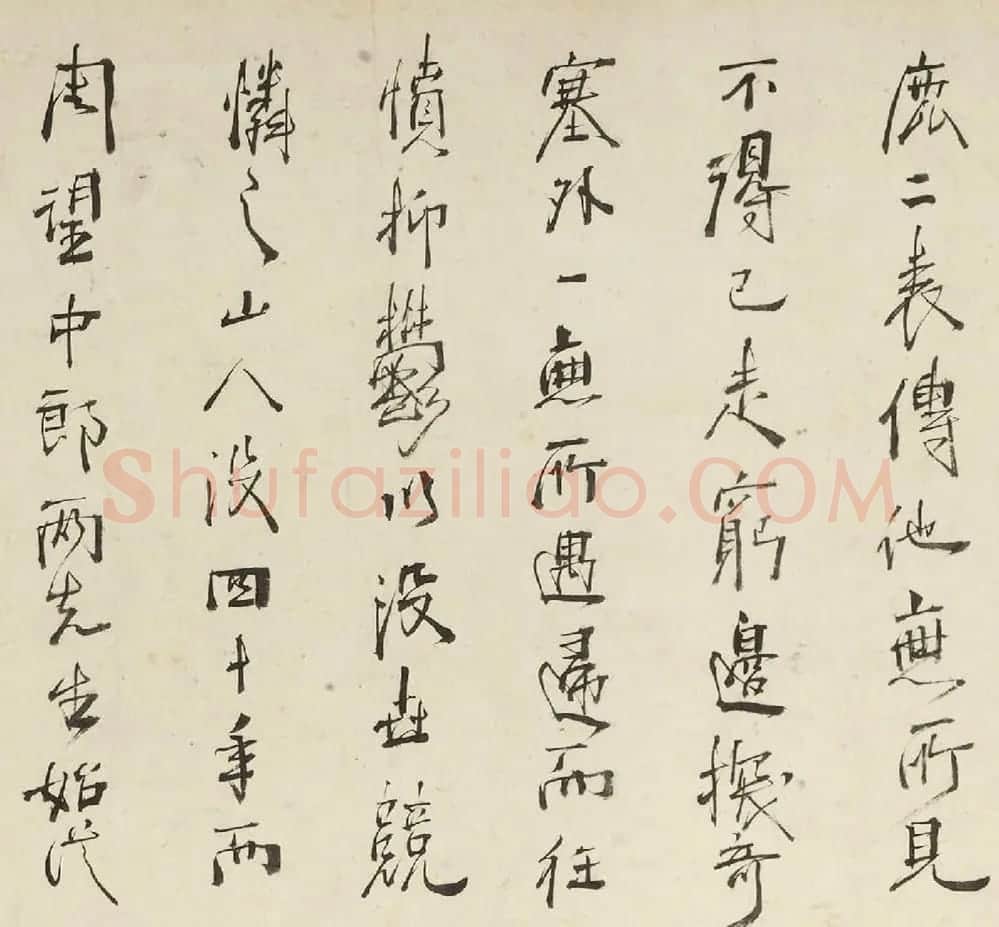 鹿二表傳他無所見
不得已走窮邊攬奇
塞外一無所遇歸而往
憤抑鬱以沒世競
憐之山人沒四十年而
周望中郎兩先生始
Shufaziliao.COM